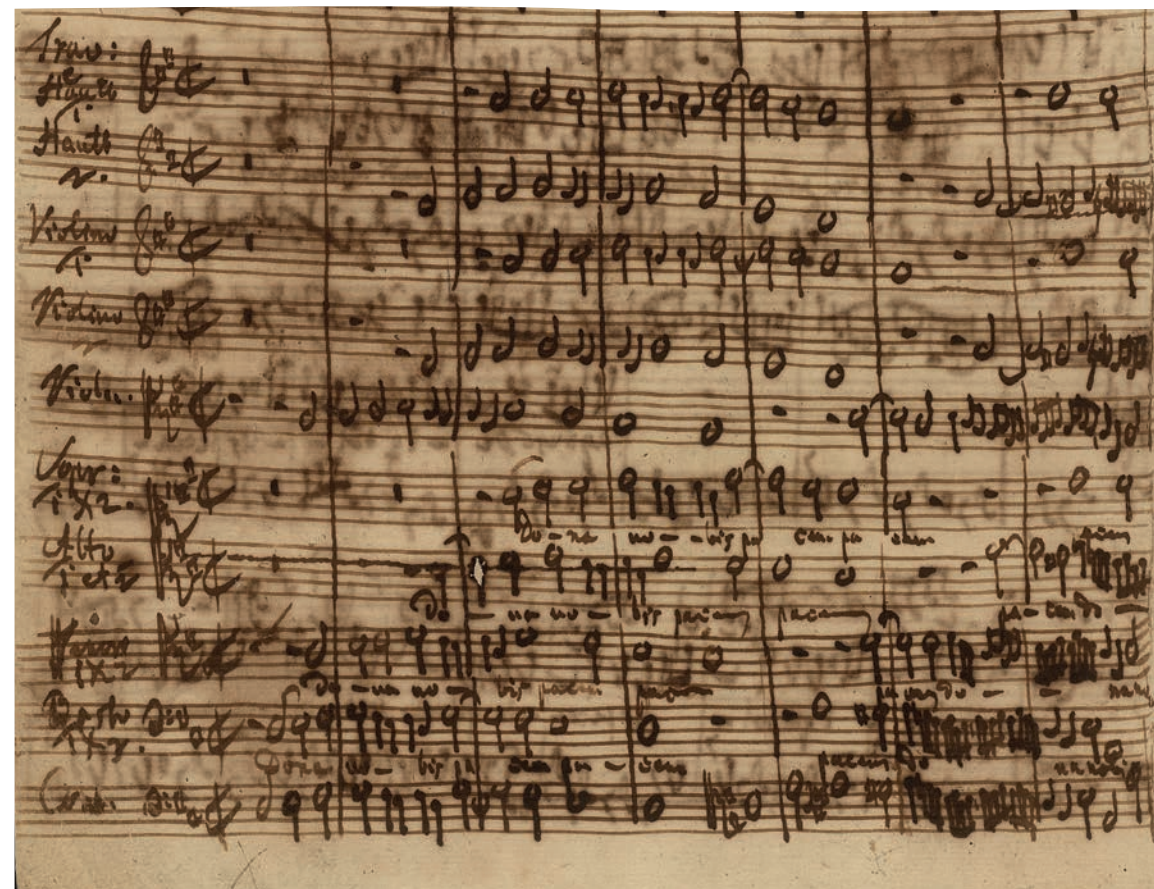 Trav:
Hautb
1
Hautb
2.
Violino
1
Violino
2
Viola.
Sopr:
1 & 2.
Do - na no - - bis pa cem pa cem pacem
Alto
1 et 2
Do - na no - bis pacem pacem pa - cem do -
Tenore
1 & 2
Do - na no - bis pacem pacem pacem do - - na no
Basso
1 & 2.
Dona no - bis pa cem pa - cem pacem Do na nobis
Cont.